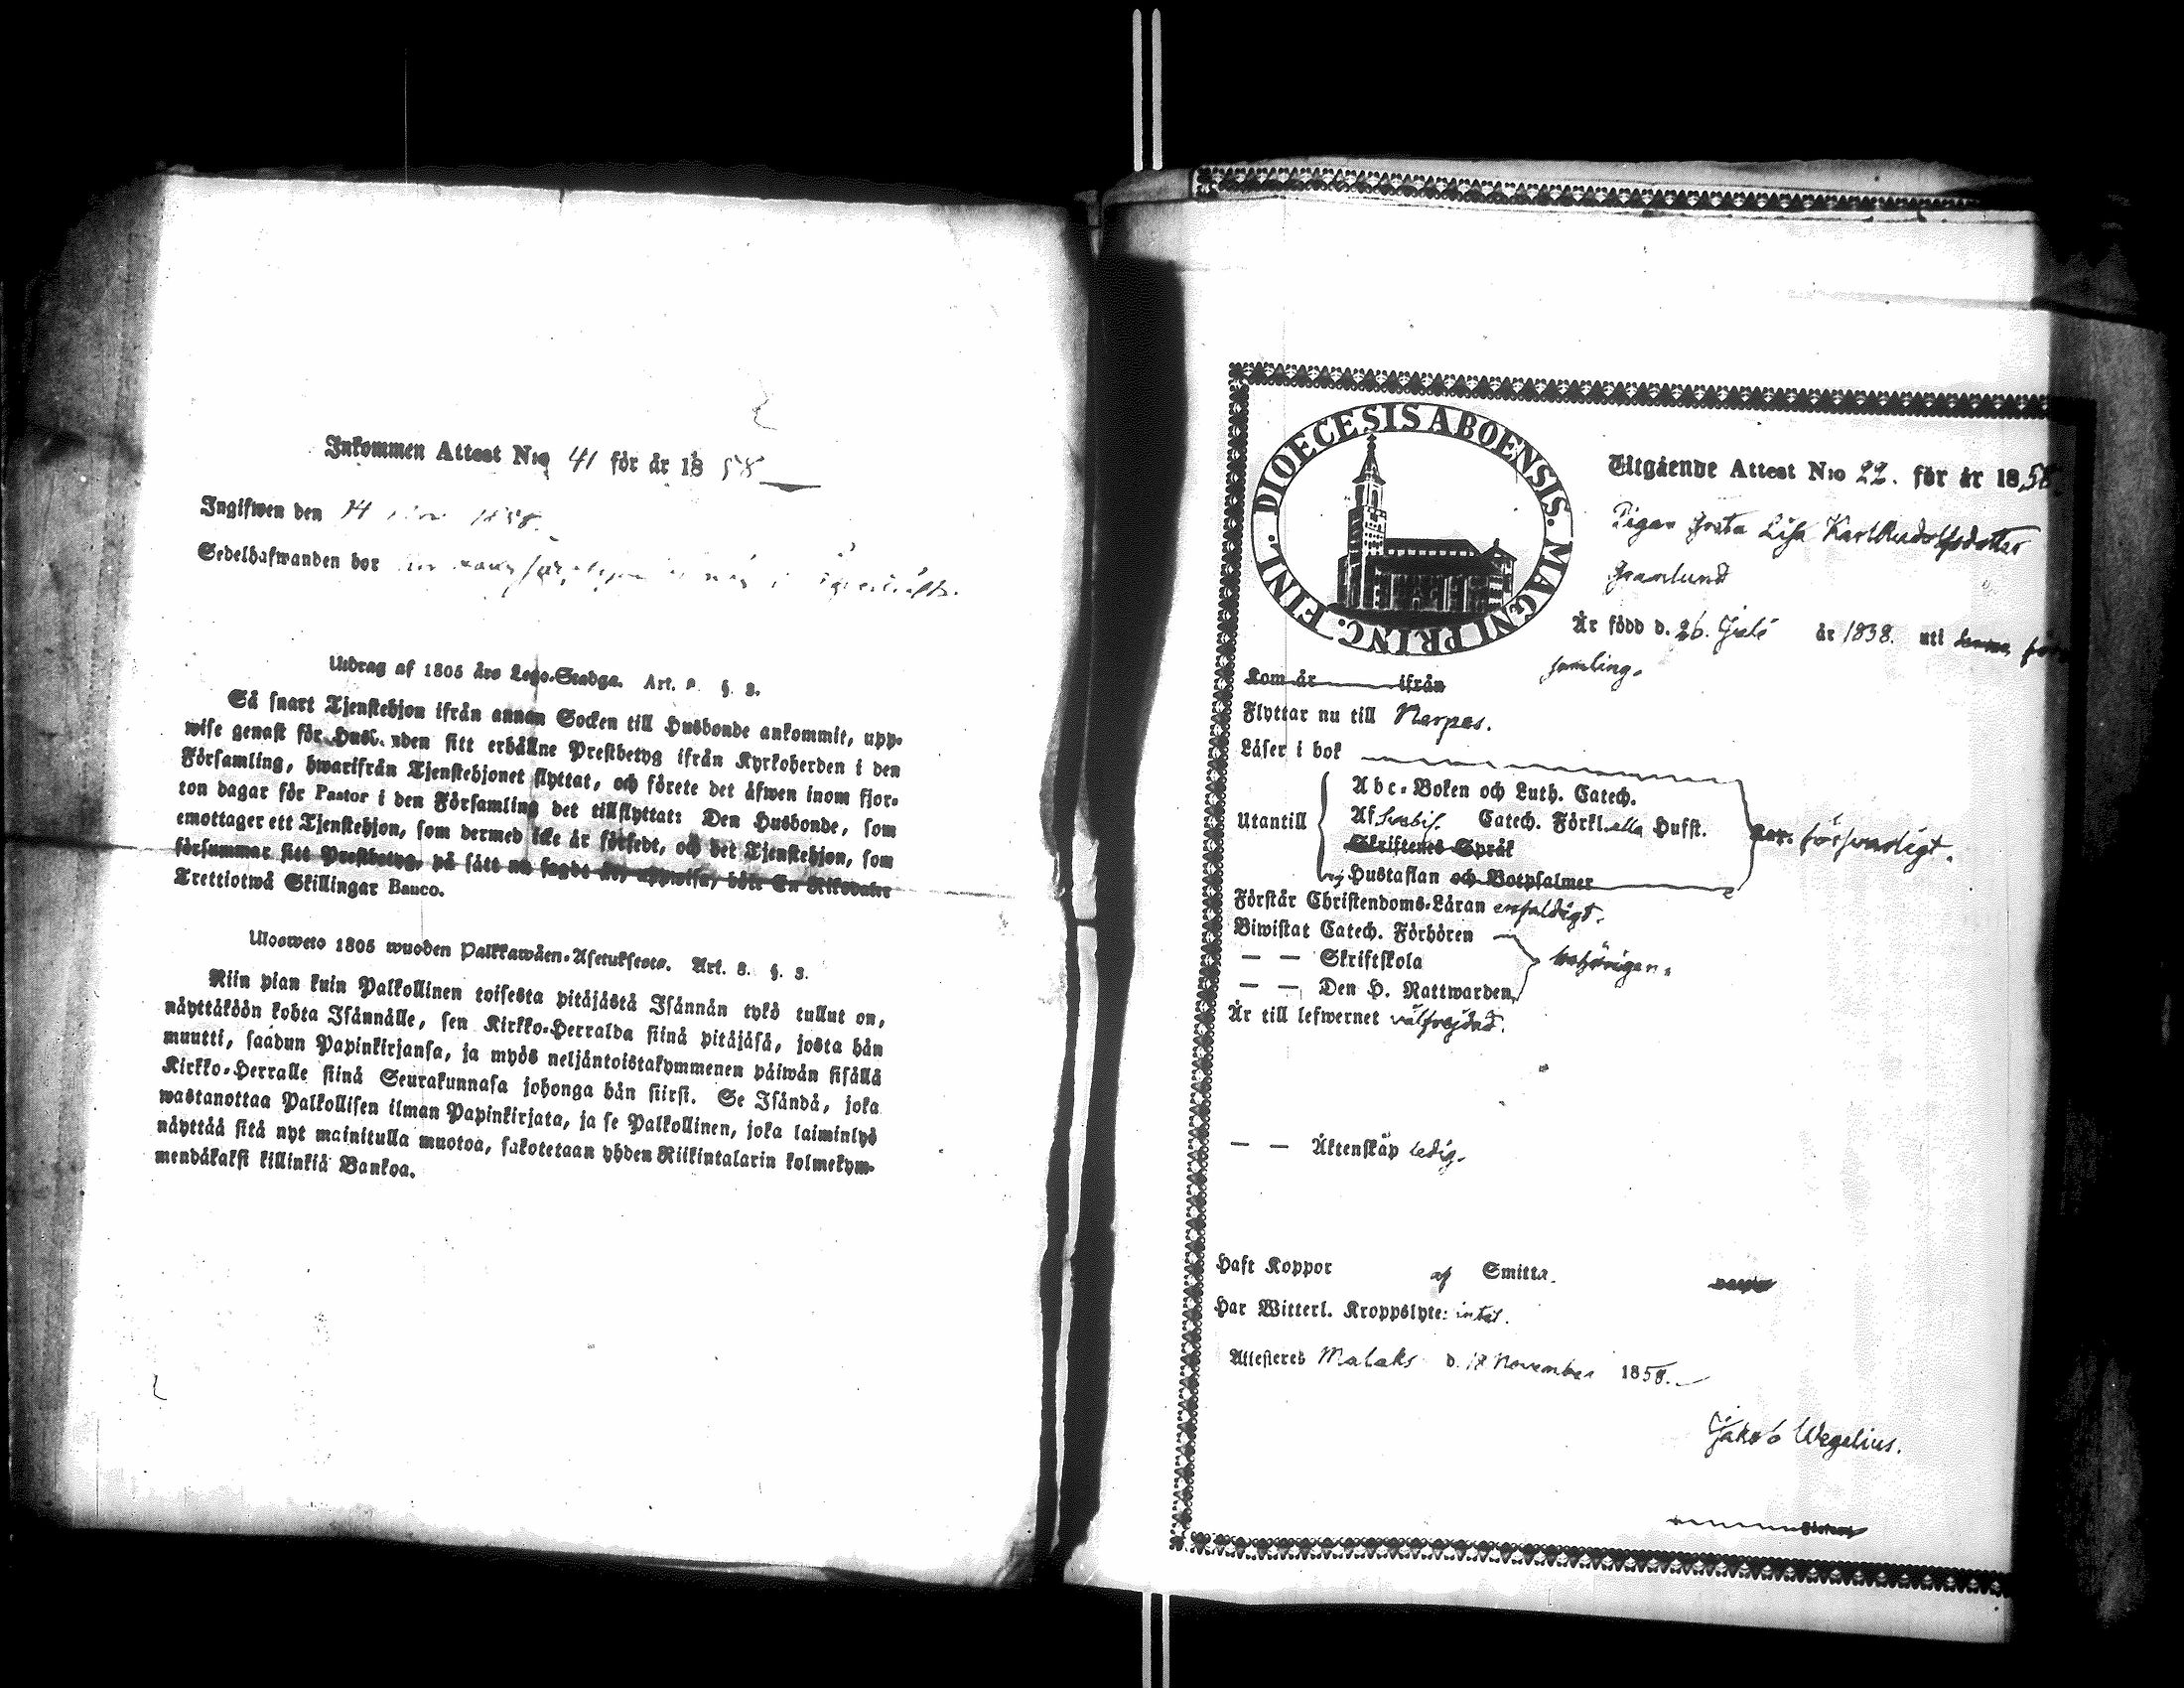 Inkommen Attest N:o 41 för år 1858
Ingifwen den 14 1858.
Sedelhafwanden bor
Utdrag af 1805 års Lego-Stadga. Art. §. 3.
Så snart Tjenstehjon ifrån annan Socken till Husbonde ankommit, upp-
wise genast för Husb. nden sitt erhållne Prestbetyg ifrån Kyrkoherden i den
Församling, hwarifrån Tjenstehjonet flyttat, och förete det äfwen inom fjor-
ton dagar för Pastor i den Församling det tillflyttat: Den Husbonde, som
emottager ett Tjenstehjon, som dermed icke är försedt, och det Tjenstehjon, som
försummar sitt Prestbetyg, på sätt nu sagdt är, uppwisa, böte En Riksdaler
Trettiotwå Skillingar Banco.
Ulosweto 1805 wuoden Palkkawäen-Asetuksesta. Art. 8. §. 3.
Niin pian kuin Palkollinen toisesta pitäjästä Isännän tykö tullut on,
näyttäköön kohta Isännälle, sen Kirkko-Herralda siinä pitäjäsä, josta hän
muutti, saadun Papinkirjansa, ja myös neljäntoistakymmenen päiwän sisällä
Kirkko-Herralle siinä Seurakunnasa johonga hän siirsi. Se Isändä, joka
wastanottaa Palkollisen ilman Papinkirjata, ja se Palkollinen, joka laiminlyö
näyttää sitä nyt mainitulla muotoa, sakotetaan yhden Riikintalarin kolmekym-
mendäkaksi killinkiä Bankoa.
DIOECESIS ABOENSIS. MAGNI PRINC. FINL.
Utgående Attest N:o 22. för år 1858.
Pigan Greta Lisa KarlRudolfsdotter
Granlund
Är född d. 26. Juli år 1838. uti denna för
samling.
Kom år ifrån
Flyttar nu till Nerpes.
Läser i bok
Utantill
Abc-Boken och Luth. Catech.
Af Swebil. Catech. Förkl. alla Hufst.
Skriftenes Språk
Hustaflan och Botpsalmer
förswarligt.
Förstår Christendoms-Läran enfaldigt.
Biwistat Catech. Förhören
— — Skriftskola
— — Den H. Nattwarden
behörigen.
Är till lefwernet välfrejdad.
— — Äktenskap ledig.
Haft Koppor af Smitta.
Har Witterl. Kroppslyte: intet.
Attesteres Malaks d. 18 November 1858.
Jakob Wegelius.